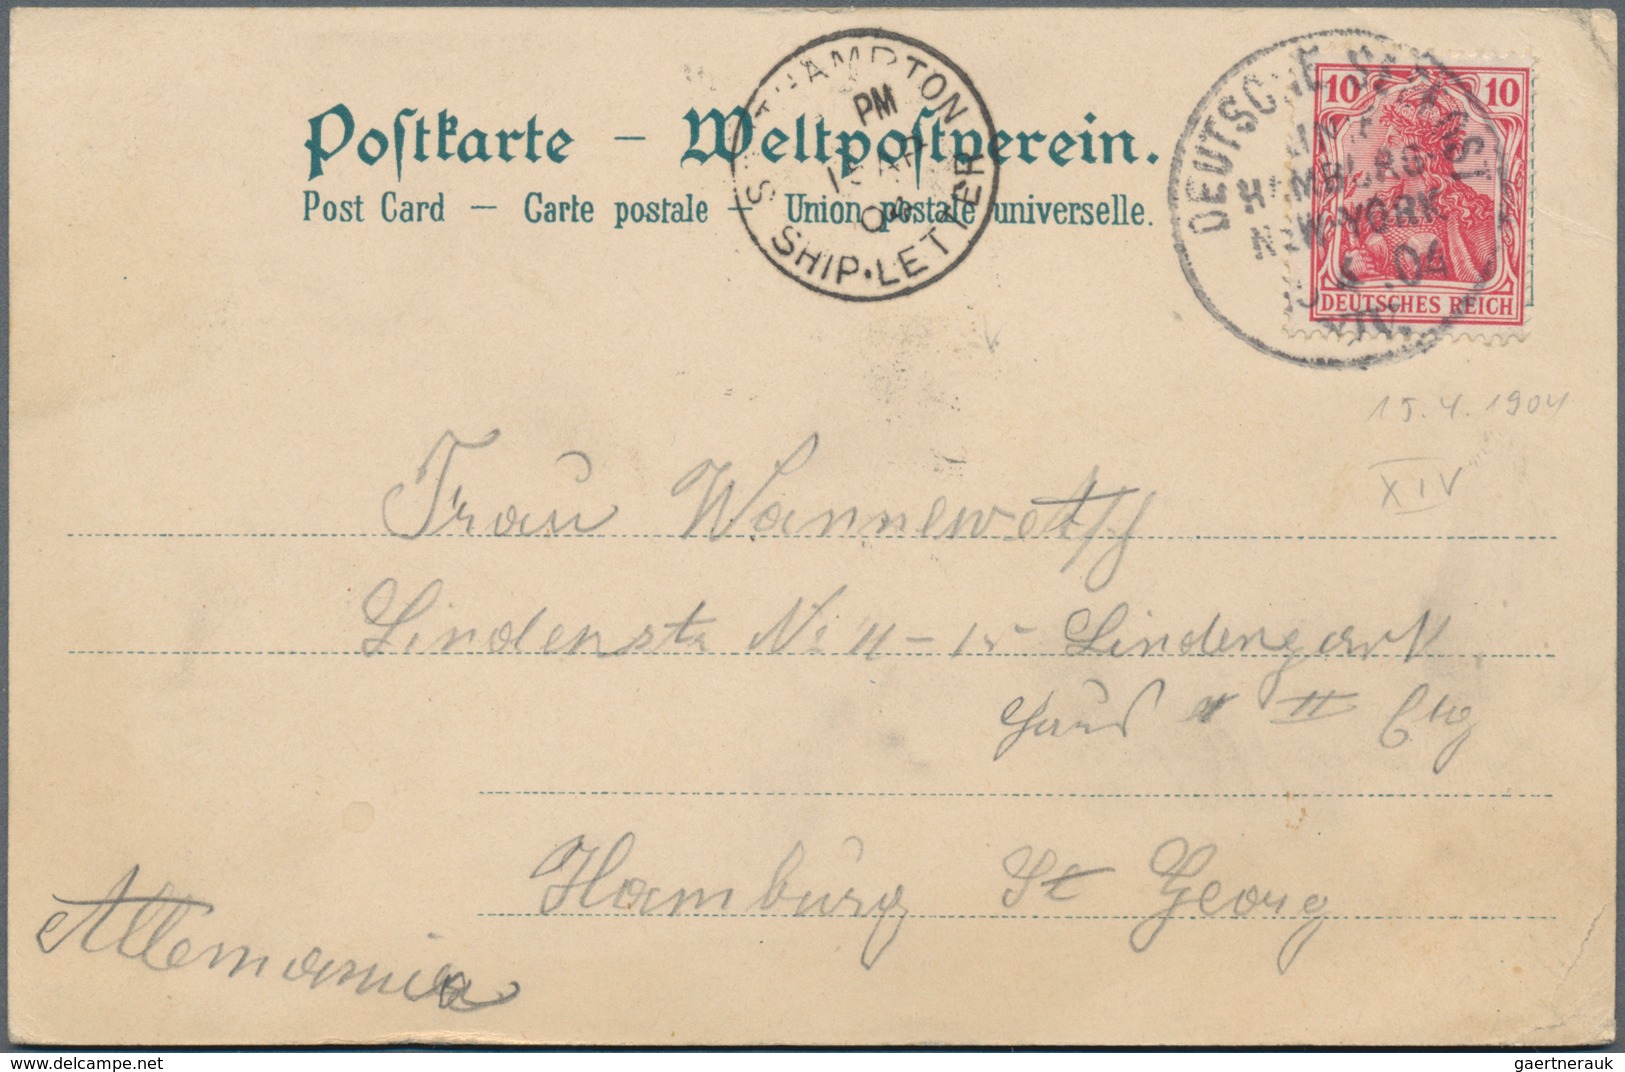 Poſtkarte – Weltpoſtverein.
Post Card – Carte postale – Union postale universelle.
SOUTHAMPTON
PM
04
SHIP·LETTER
DEUTSCHE SEEPOST
LINIE
HAMBURG-
NEW-YORK
15 4 .04
XIV.
10 10
DEUTSCHES REICH
15.4.1904
XIV
Frau Wannewetsch
Lindenstr No 11 – 15 Lindenpark
Haus II Etg
Hamburg St Georg
Allemania
gaertnerauk
www.delcampe.net